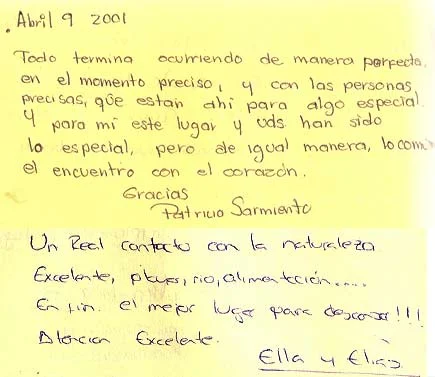 Abril 9 2001
Todo termina ocurriendo de manera perfecta,
en el momento preciso, y con las personas
precisas, que están ahi para algo especial.
Y para mi este lugar y uds han sido
lo especial, pero de igual manera, lo com
el encuentro con el corazón.
Gracias
Patricio Sarmiento
Un Real contacto con la naturaleza
Excelente, playas, rio, alimentación....
En fin. el mejor lugar para descansar!!!
Atencion Excelente.
Ella y Elias